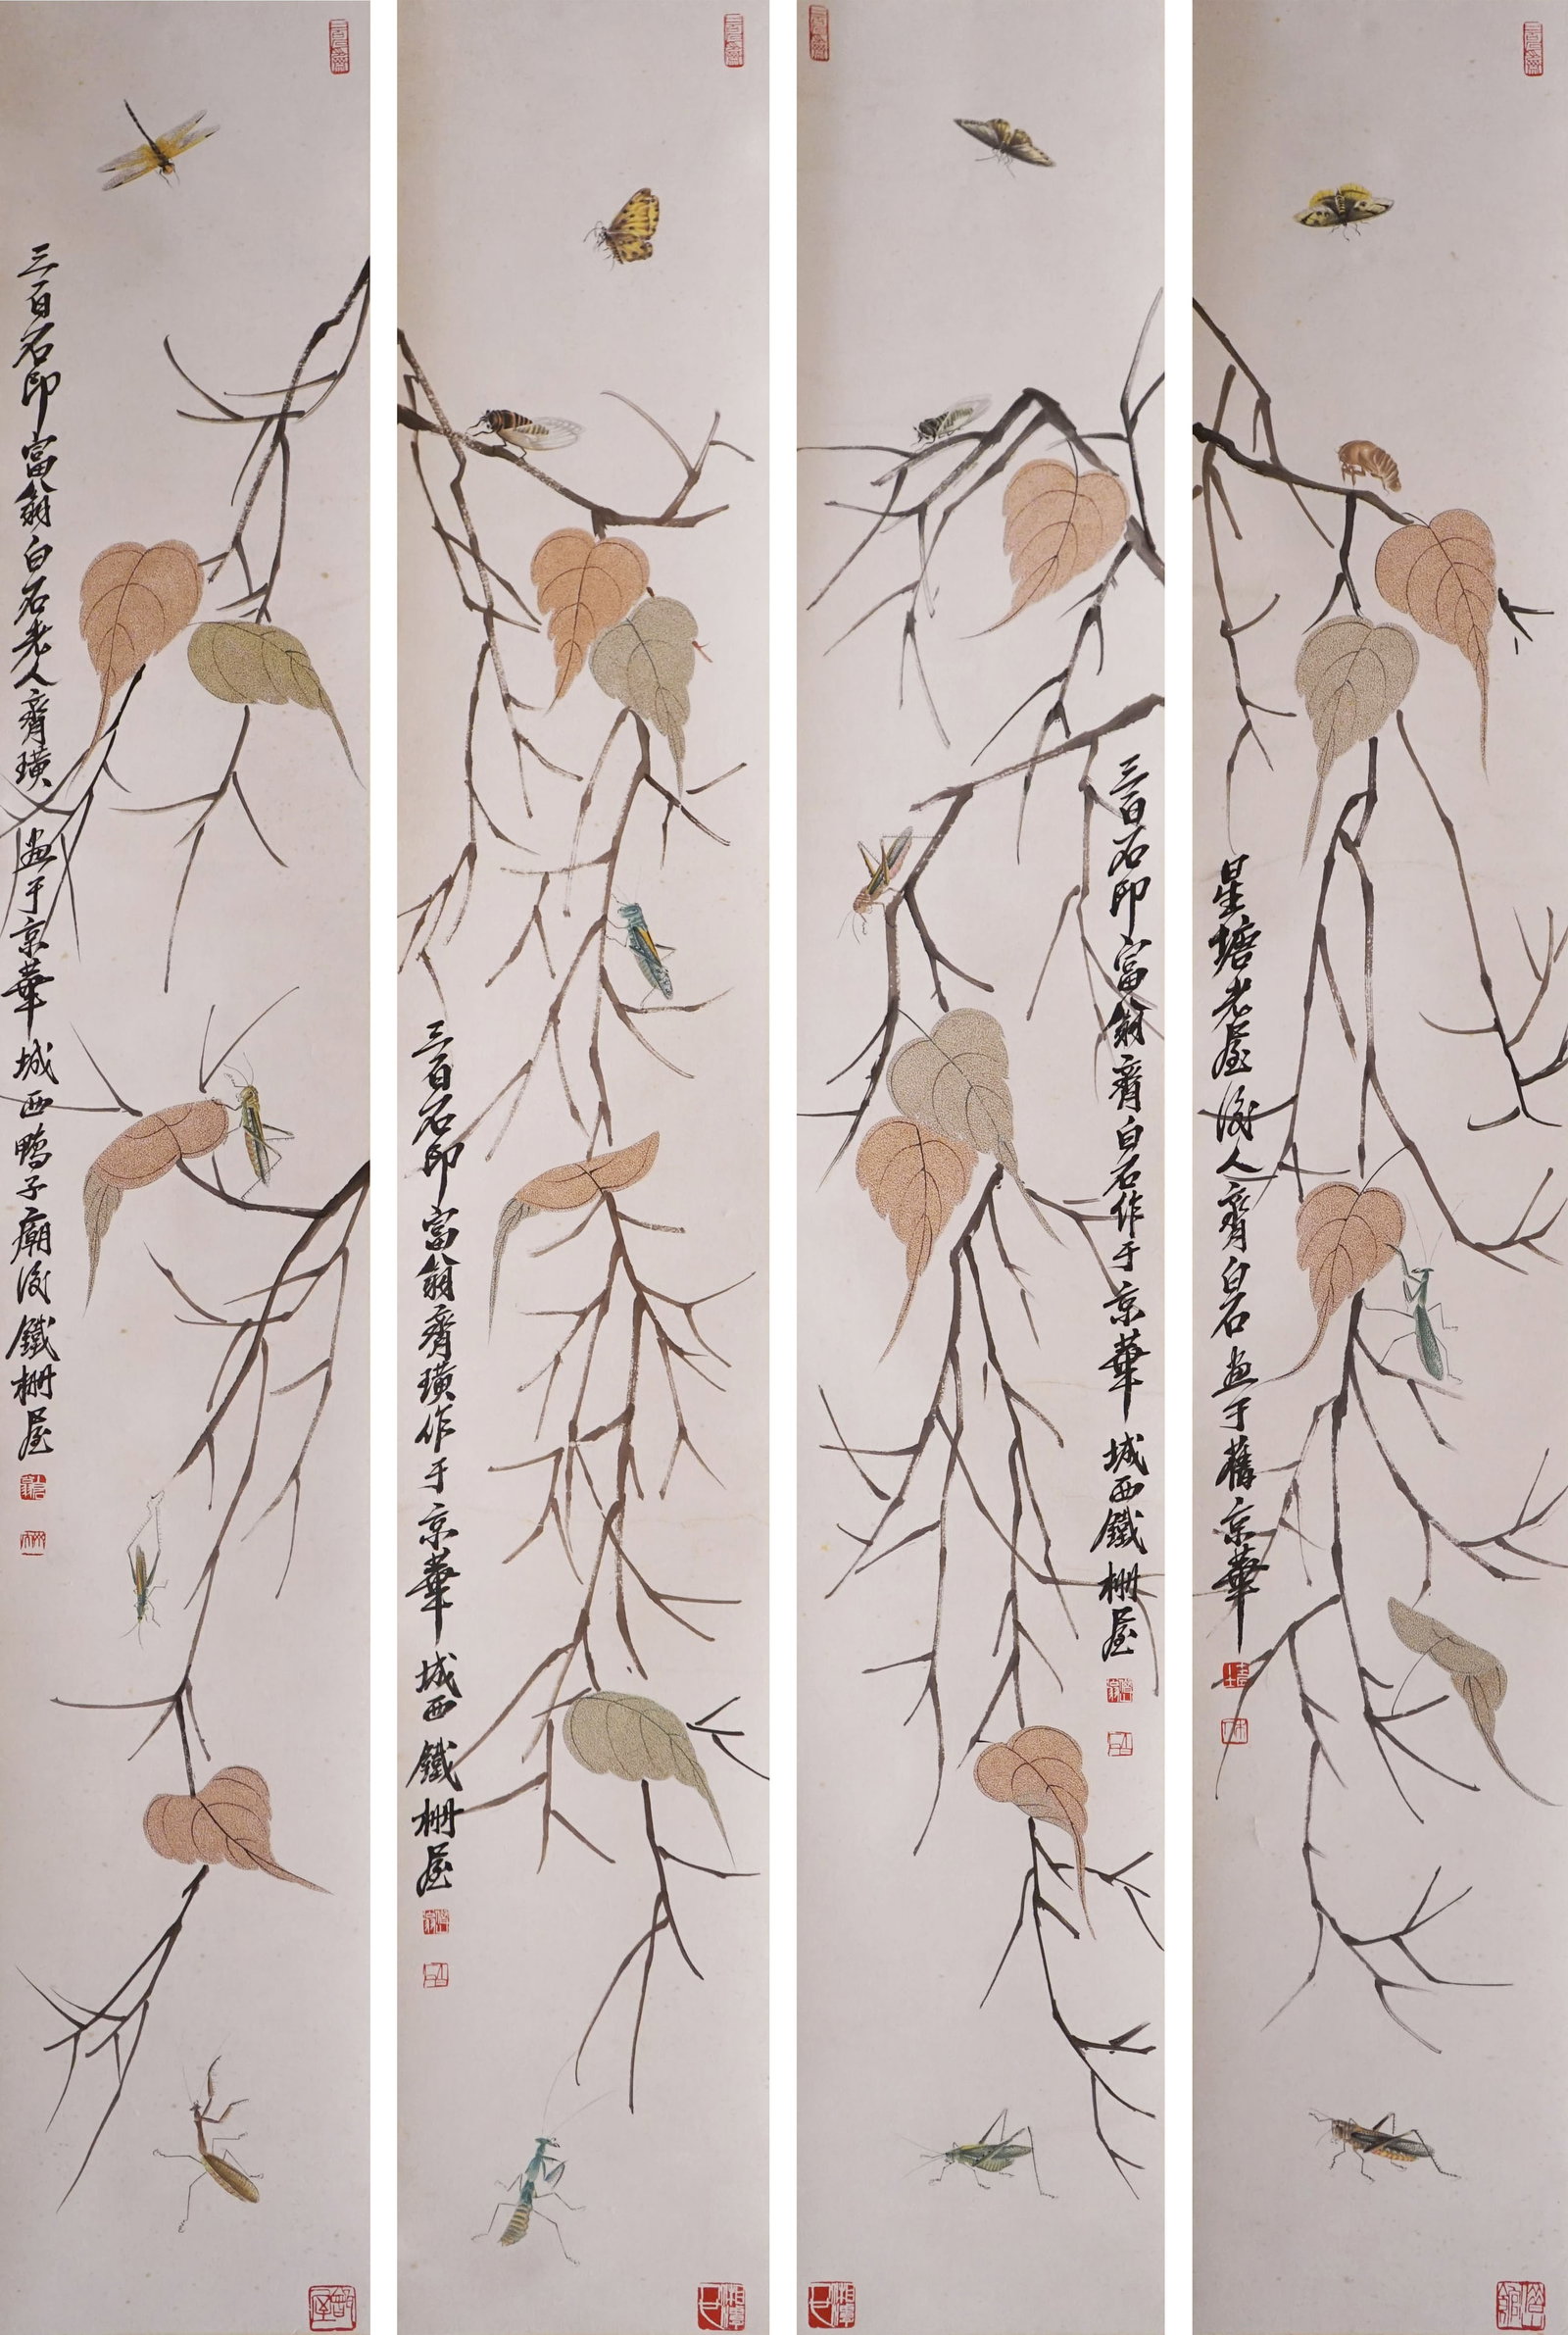 三百石印富翁白石老人齊璜畫于京華城西鴨子廟後鐵柵屋
三百石印富翁齊璜作于京華城西鐵柵屋
三百石印富翁齊白石作于京華城西鐵柵屋
星塘老屋後人齊白石畫于舊京華